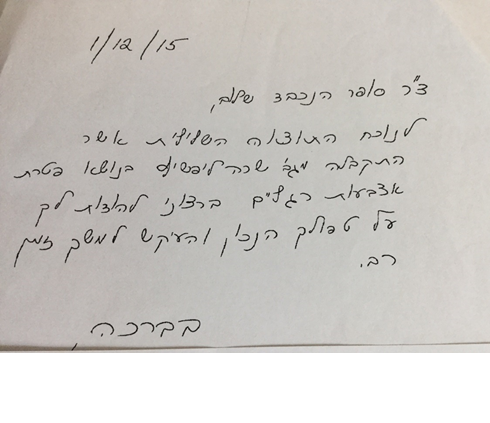 1/12/15
ד"ר סופר הנכבד שלום,
לנוכח התוצאה השלילית אשר
התקבלה מגב' שרה ליפשיץ בנושא פטרת
אצבעות רגליים ברצוני להודות לך
על טפולך הנכון והעיקש למשך זמן
רב.
בברכה,